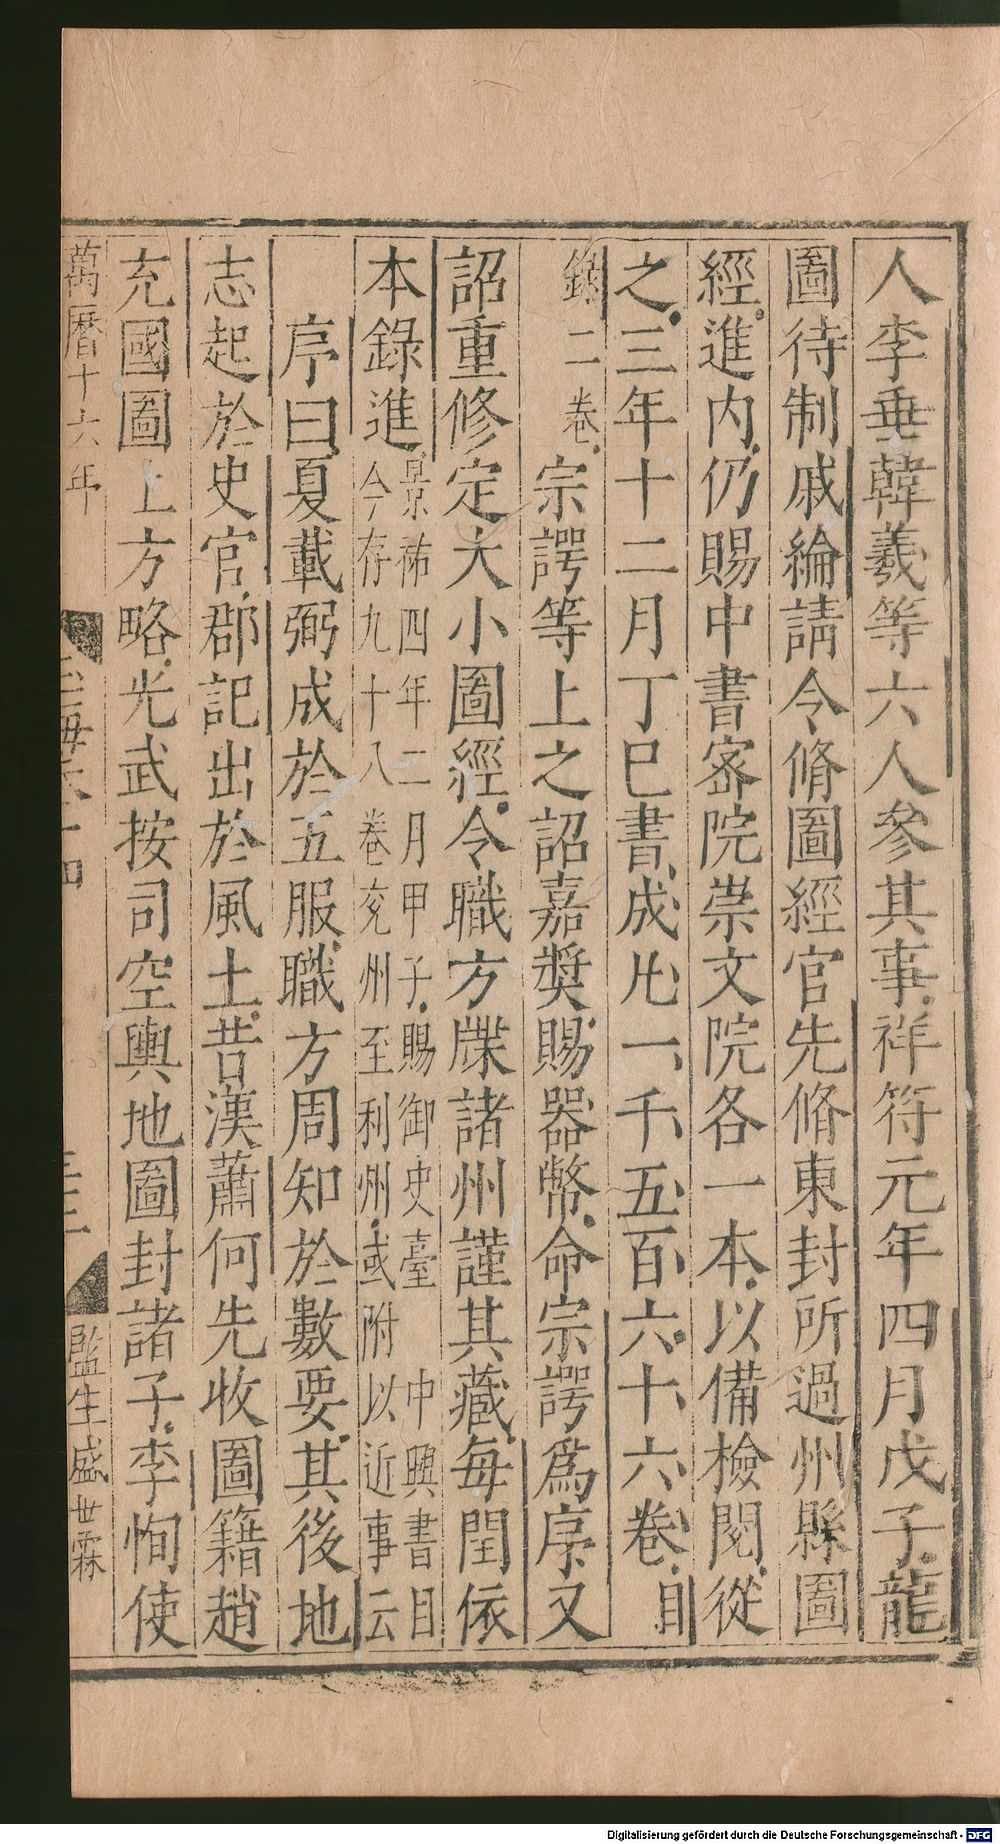 人李垂韓羲等六人參其事祥符元年四月戊子龍
圖待制戚綸請令脩圖經官先脩東封所過州縣圖
經進内仍賜中書宻院崇文院各一本以備檢閱從
之三年十二月丁巳書成凡一千五百六十六卷目
錄二卷宗諤等上之詔嘉奬賜器幣命宗諤爲序又
詔重修定大小圖經令職方牒諸州謹其藏每閏依
本錄進景祐四年二月甲子賜御史臺 中興書目
今存九十八卷兖州至利州或附以近事云
序曰夏載弼成於五服職方周知於數要其後地
志起於史官郡記出於風土昔漢蕭何先收圖籍趙
充國圖上方略光武按司空輿地圖封諸子李恂使
萬曆十六年
監生盛世霖
Digitalisierung gefördert durch die Deutsche Forschungsgemeinschaft - DFG